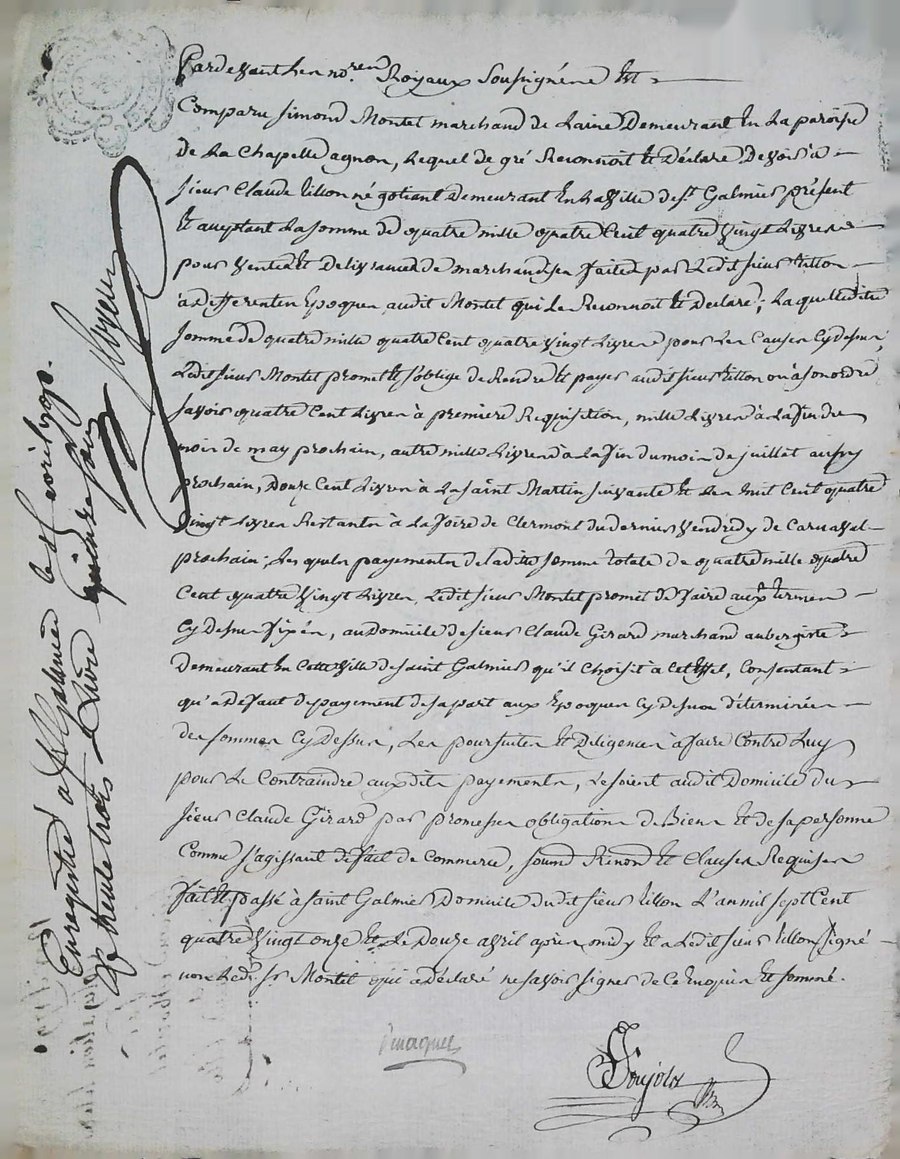 Pardevant les no.res Royaux Soussignés est
Comparu Simond Montet marchand de Laine Demeurant En La paroisse
de La Chapelle agnon, Lequel de gré Reconnoit et Déclare Devoir à
sieur Claude Tillon négotiant Demeurant En La Ville de St Galmier présent
et acceptant La somme de quatre mille quatre Cent quatre Vingt Livres
pour Vente et Délivrance de marchandises faites par Ledit sieur Tillon
à Differentes Epoques audit Montet qui Le Reconnoit et Déclare ; Laquelle dite
somme de quatre mille quatre Cent quatre Vingt Livres pour Les Causes Cy dessus,
Ledit sieur Montet promet et s'oblige de Rendre et payer audit sieur Tillon ou à son ordre
savoir quatre Cent Livres à première Requisition, mille Livres à La fin du
mois de may prochain, autre mille Livres à La fin du mois de juillet aussy
prochain, Douze Cent Livres à La saint Martin suivante et Les huit Cent quatre
Vingt Livres Restants à La foire de Clermont du dernier Vendredy de Carnaval
prochain ; Les quels payements de Ladite somme totale de quatre mille quatre
Cent quatre Vingt Livres, Ledit sieur Montet promet de faire aux termes
Cy dessus fixés, au Domicile de sieur Claude Girard marchand aubergiste
Demeurant En Cette Ville de saint Galmier qu'il Choisit à Cet Effet, Consentant
qu'a Défaut de payement de sa part aux Epoques Cy dessus déterminées
des sommes Cy Dessus, Les poursuites et Diligences à faire Contre Luy
pour Le Contraindre auxdits payements, Le soient audit Domicile du
sieur Claude Girard par promesses obligations de Biens et de sa personne
Comme s'agissant de fait de Commerce, soumd Renond et Clauses Requises
fait et passé à saint Galmier Domicile dudit sieur Tillon L'an mil sept Cent
quatre Vingt onze et Le Douze avril après midy et a Ledit sieur Tillon signé
non Ledt sr Montet qui a Déclaré ne savoir signer de Ce Enquis et sommé.
Enregistré à St Galmier le avril 1791.
Rx trente trois Livre quinze sols